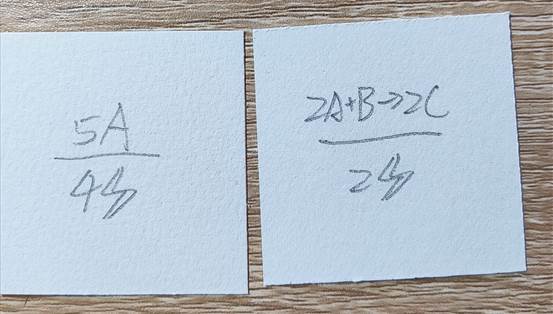 5A
4⚡
2A+B→2C
2⚡